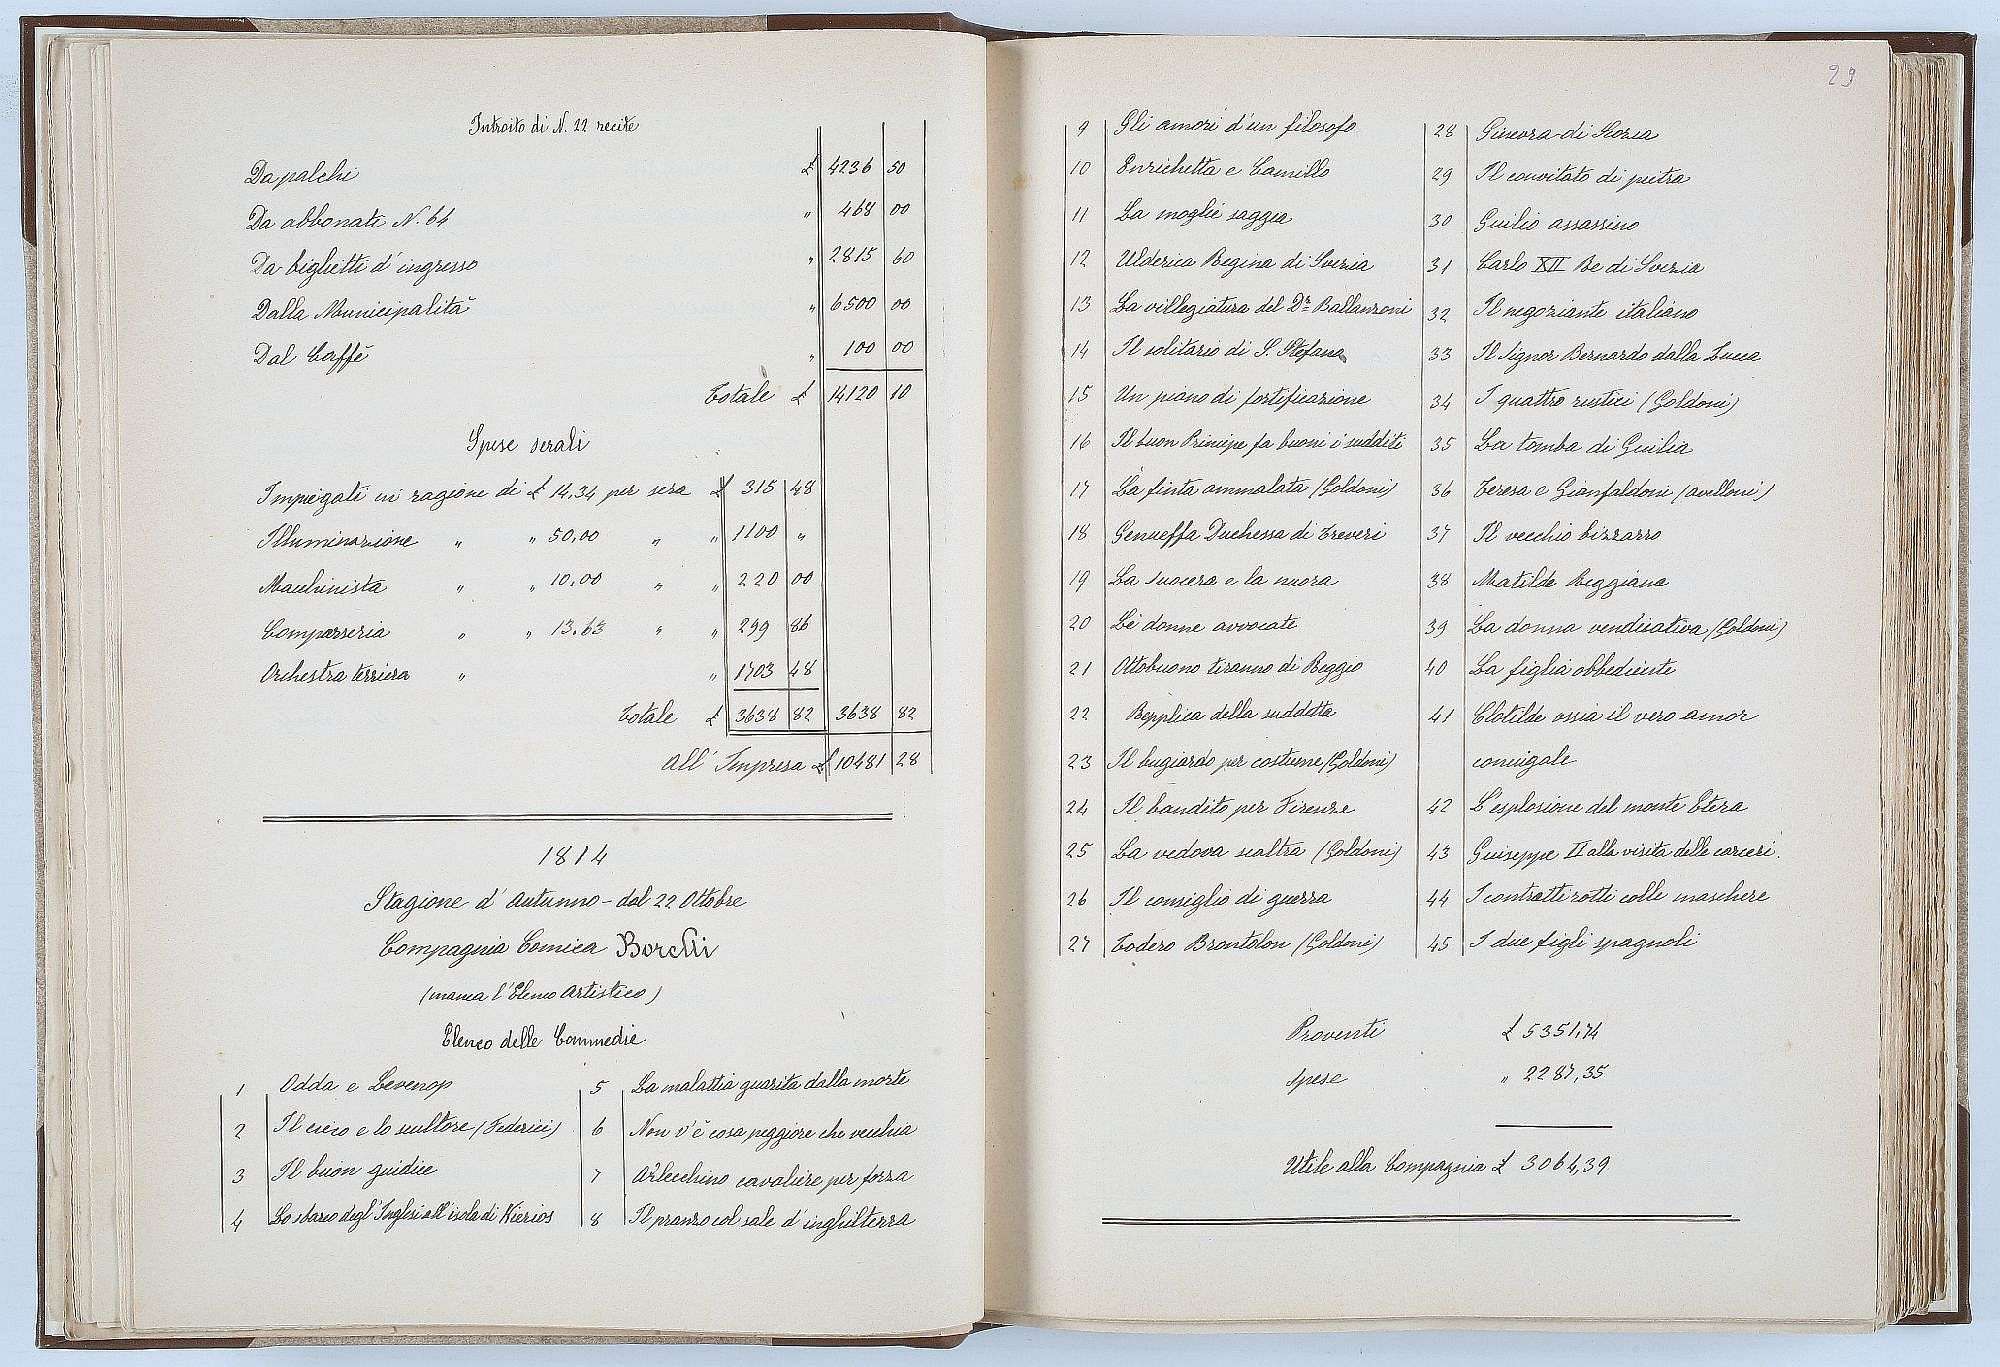 Introito di N. 22 recite
Da palchi £ 4236 50
Da abbonati N. 64 " 468 00
Da biglietti d'ingresso " 2815 60
Dalla Municipalità " 6500 00
Dal Caffè " 100 00
Totale £ 14120 10
Spese serali
Impiegati in ragione di £ 14,34 per sera £ 315 48
Illuminazione " " 50,00 " " 1100 "
Macchinista " " 10,00 " " 220 00
Comparseria " " 13,63 " " 299 86
Orchestra terriera " " 1703 48
Totale £ 3638 82 3638 82
All' Impresa £ 10481 28
1814
Stagione d'Autunno - dal 22 Ottobre
Compagnia Comica Borelli
(manca l'Elenco Artistico)
Elenco delle Commedie.
1 Odda e Levenop
2 Il cieco e lo scultore (Federici)
3 Il buon giudice
4 Lo sbarco degl'Inglesi all'isola di
5 La malattia guarita dalla morte
6 Non v'è cosa peggiore che vecchia
7 Arlecchino cavaliere per forza
8 Il pranzo col sale d'inghilterra
29
9 Gli amori d'un filosofo
10 Enrichetta e Camillo
11 La moglie saggia
12 Ulderica Regina di Svezia
13 La villegiatura del Dr Ballanzoni
14 Il solitario di S. Stefano
15 Un piano di fortificazione
16 Il buon Principe fa buoni i sudditi
17 La finta ammalata (Goldoni)
18 Genueffa Duchessa di Treveri
19 La suocera e la nuora
20 Le donne avvocate
21 Ottobuono tiranno di Reggio
22 Repplica della suddetta
23 Il bugiardo per costume (Goldoni)
24 Il bandito per Firenze
25 La vedova scaltra (Goldoni)
26 Il consiglio di guerra
27 Todero Brontolon (Goldoni)
28 Ginevra di Scozia
29 Il convitato di pietra
30 Guilio assassino
31 Carlo XII Re di Svezia
32 Il negoziante italiano
33 Il Signor Bernardo dalla Zucca
34 I quattro rustici (Goldoni)
35 La tomba di Guilia
36 Teresa e Gianfaldoni (Avelloni)
37 Il vecchio bizzarro
38 Matilde Reggiana
39 La donna vendicativa (Goldoni)
40 La figlia obbediente
41 Clotilde ossia il vero amor
coniugale
42 L'esplosione del monte Etera
43 Guiseppe II alla visita delle carceri.
44 I contratti rotti colle maschere
45 I due figli spagnoli
Proventi £ 5351,74
Spese " 2287,35
Utile alla Compagnia £ 3064,39